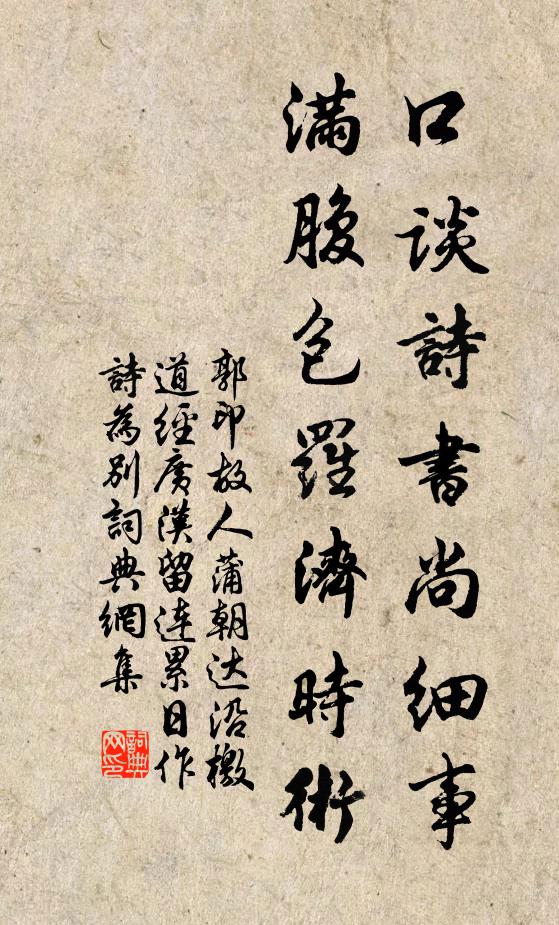 口談詩書尚細事
滿腹包羅濟時術
郭印故人蒲朝达沿檄
道經廣漢留連累日作
詩為別詞典網集
詞典網印